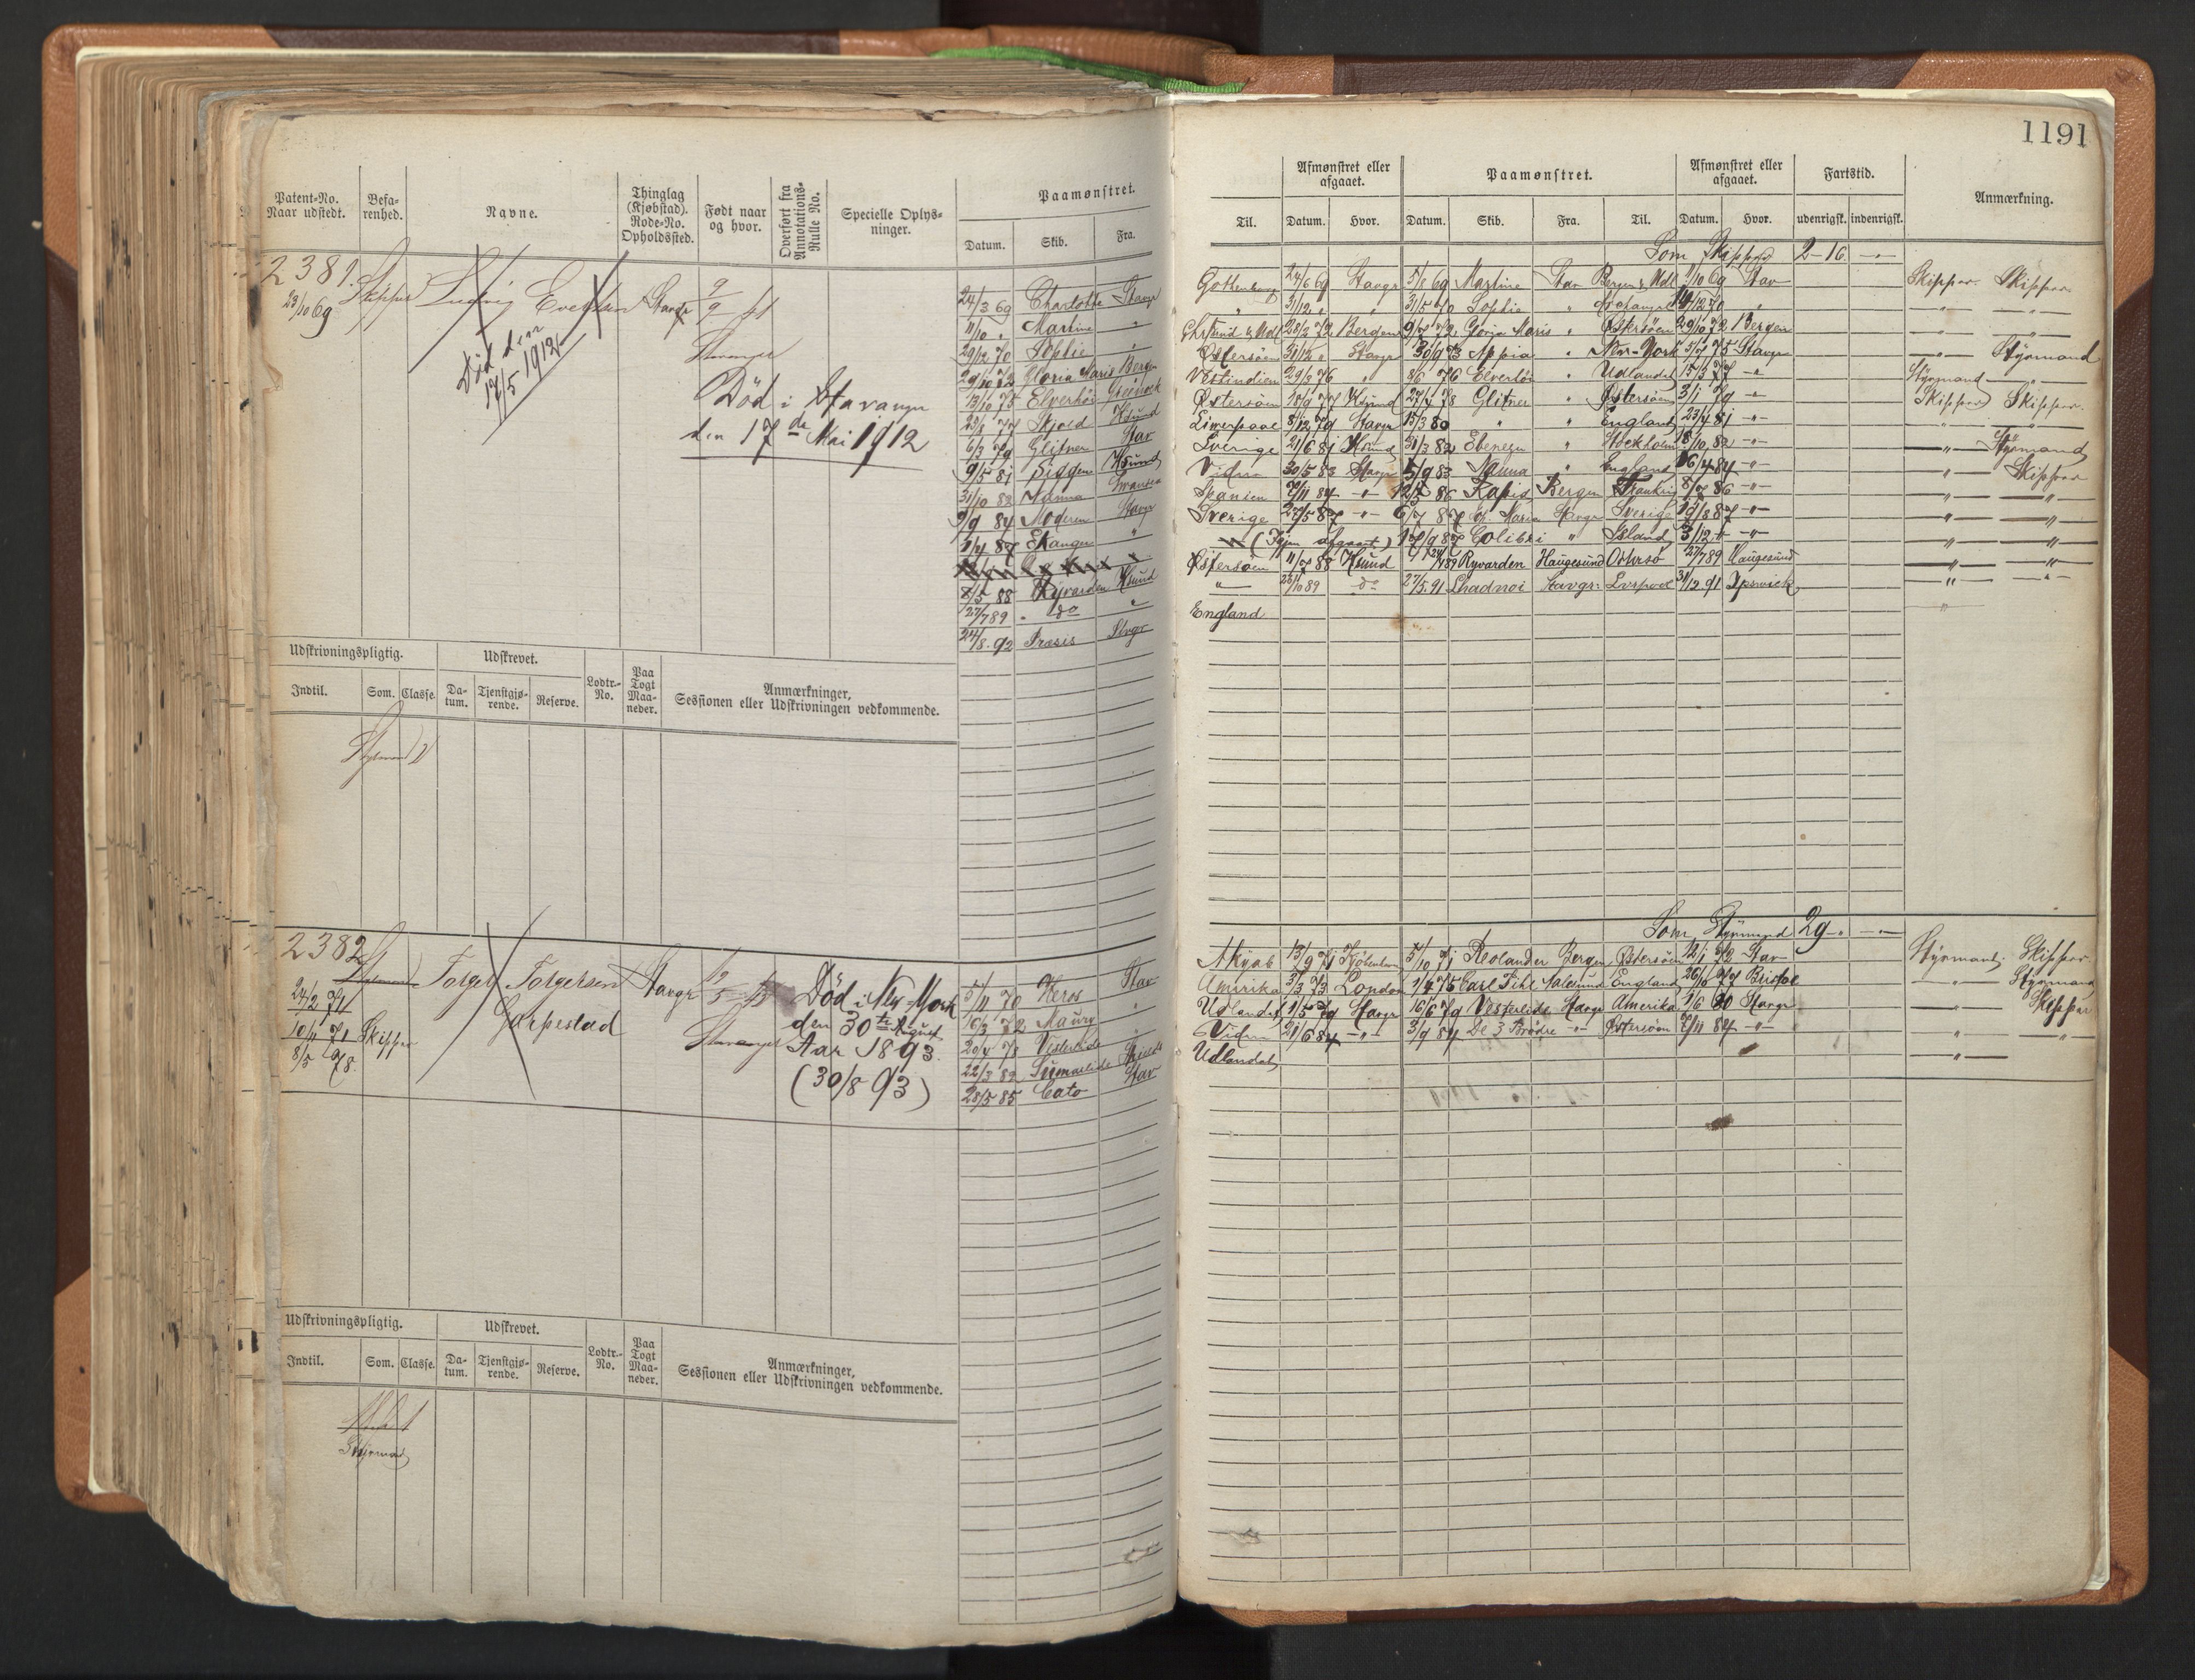 1191
Patent-No. Naar udstedt.
Befarenhed.
Navne.
Thinglag (Kjøbstad). Rode-No. Opholdssted.
Født naar og hvor.
Overført fra Annotations-Rulle No.
Specielle Oplysninger.
Paamønstret.
Datum. Skib. Fra.
2381. Skipper Ludvig Evertsen Stavgr 9/9
23/10 69
Stavanger
Død den
17/5 1912
Død i Stavanger
den 17de Mai 1912
24/3 69 Charlotte Stavgr
11/10 " Martine "
29/12 70 Sophie "
29/10 72 Gloria Maris Bergen
13/10 75 Elverhöi Greenock
23/8 77 Skjold Ksund
6/3 79 Glitner Stav
9/5 81 Siggen Ksund
31/10 83 Nanna Swansea
9/9 84 Moderen Stavgr
1/4 87 Stanger "
8/5 88 Ryvarden Ksund
27/7 89 " do "
24/8. 92 Præsis Stvgr
Udskrivningspligtig. Udskrevet. Lodtr.-No. Paa Togt Maaneder. Anmærkninger, Sessionen eller Udskrivningen vedkommende.
Indtil. Som. Classe. Datum. Tjenstgjørende. Reserve.
Styrmand
2382 Styrmand Torger Torgersen Stavgr
24/2 71 Garpestad
10/11 71 Skipper
8/5 78.
Stavanger
Død i New-York
den 30te August
Aar 1893.
(30/8 93)
5/11 70 Heros Stav
16/3 72 Maury "
20/4 78 Vesterlide "
22/3 82 Summerlide Shields
28/5 85 Cato Stav
Udskrivningspligtig. Udskrevet. Lodtr.-No. Paa Togt Maaneder. Anmærkninger, Sessionen eller Udskrivningen vedkommende.
Indtil. Som. Classe. Datum. Tjenstgjørende. Reserve.
Styrmand
Afmønstret eller afgaaet. Paamønstret. Afmønstret eller afgaaet. Fartstid. Anmærkning.
Til. Datum. Hvor. Datum. Skib. Fra. Til. Datum. Hvor. udenrigsk. indenrigsk.
Som Skipper 2-16 -"-
Gothenborg 24/6 69 Stavgr 5/8 69 Martine Stav Bergen & Mdl 1/10 69 Stav Skipper. Skipper
" 31/12 " " 31/5 70 Sophie " Archangel 14/12 70 " -"- -"-
Chrsund & Mdl 28/2 72 Bergen 9/7 72 Gloria Maris " Østersöen 29/10 72 Bergen -"- -"-
Østersöen 31/12 " Stavgr 30/9 73 Appia " New-York 5/7 75 Stavgr -"- Styrmand
Vestindien 29/3 76 " 8/6 76 Elverhöi " Udlandet 15/3 77 -"- Styrmand -"-
Østersöen 18/9 77 Ksund 27/4 78 Glitner " Østersöen 3/1 79 -"- Skipper Skipper.
Liverpool 8/12 79 Stavgr 15/3 80 " " England 23/4 81 -"- -"- -"-
Sverige 21/6 81 Ksund 31/3 82 Ebenezer " Stockholm 18/10 82 -"- -"- Styrmand
Vidre 30/5 83 Stavgr 5/9 83 Nanna " England 16/4 84 -"- -"- Skipper
Spanien 7/11 84 -"- 12/5 86 Rapid Bergen Frankrig 8/7 86 -"- -"- -"-
Sverige 27/5 87 -"- 6/7 87 Maria Stavgr Sverige 19/8 87 -"- -"- -"-
-"- (Igjen afgaaet) 17/9 87 Colibri " Island 3/12 " -"- -"- -"-
Østersöen 11/7 88 Ksund 24/4 89 Ryvarden Haugesund Ostersö 27/7 89 Haugesund -"- -"-
-"- 28/10 89 -do- 27/5. 91 Shadnoi Stavgr: Lvrpool 31/12. 91 Ipswich -"- -"-
England "
Som Styrmand 29-"- -"-
Akyab 13/9 71 Kjöbenhavn 5/10 71 Reolander Bergen Østersöen 12/1 72 Stav Styrmand. Skipper.
Amerika 3/3 73 London 1/4 75 Carl Pihl Aalesund England 26/6 77 Bristol -"- Styrmand
Udlandet 1/5 79 Stavgr 16/6 79 Vesterlide Stavgr Amerika 1/6 80 Stavgr -"- Skipper
Vidre 21/6 84 -"- 3/9 84 De 3 Brödre -"- Østersöen 7/11 84 -"- -"- -"-
Udlandet -"-